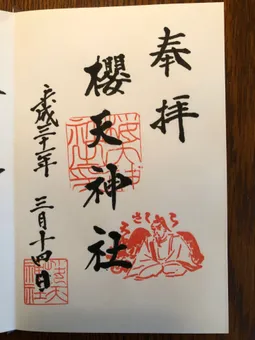 奉拝
櫻天神社
平成三十一年 三月十四日
さくら